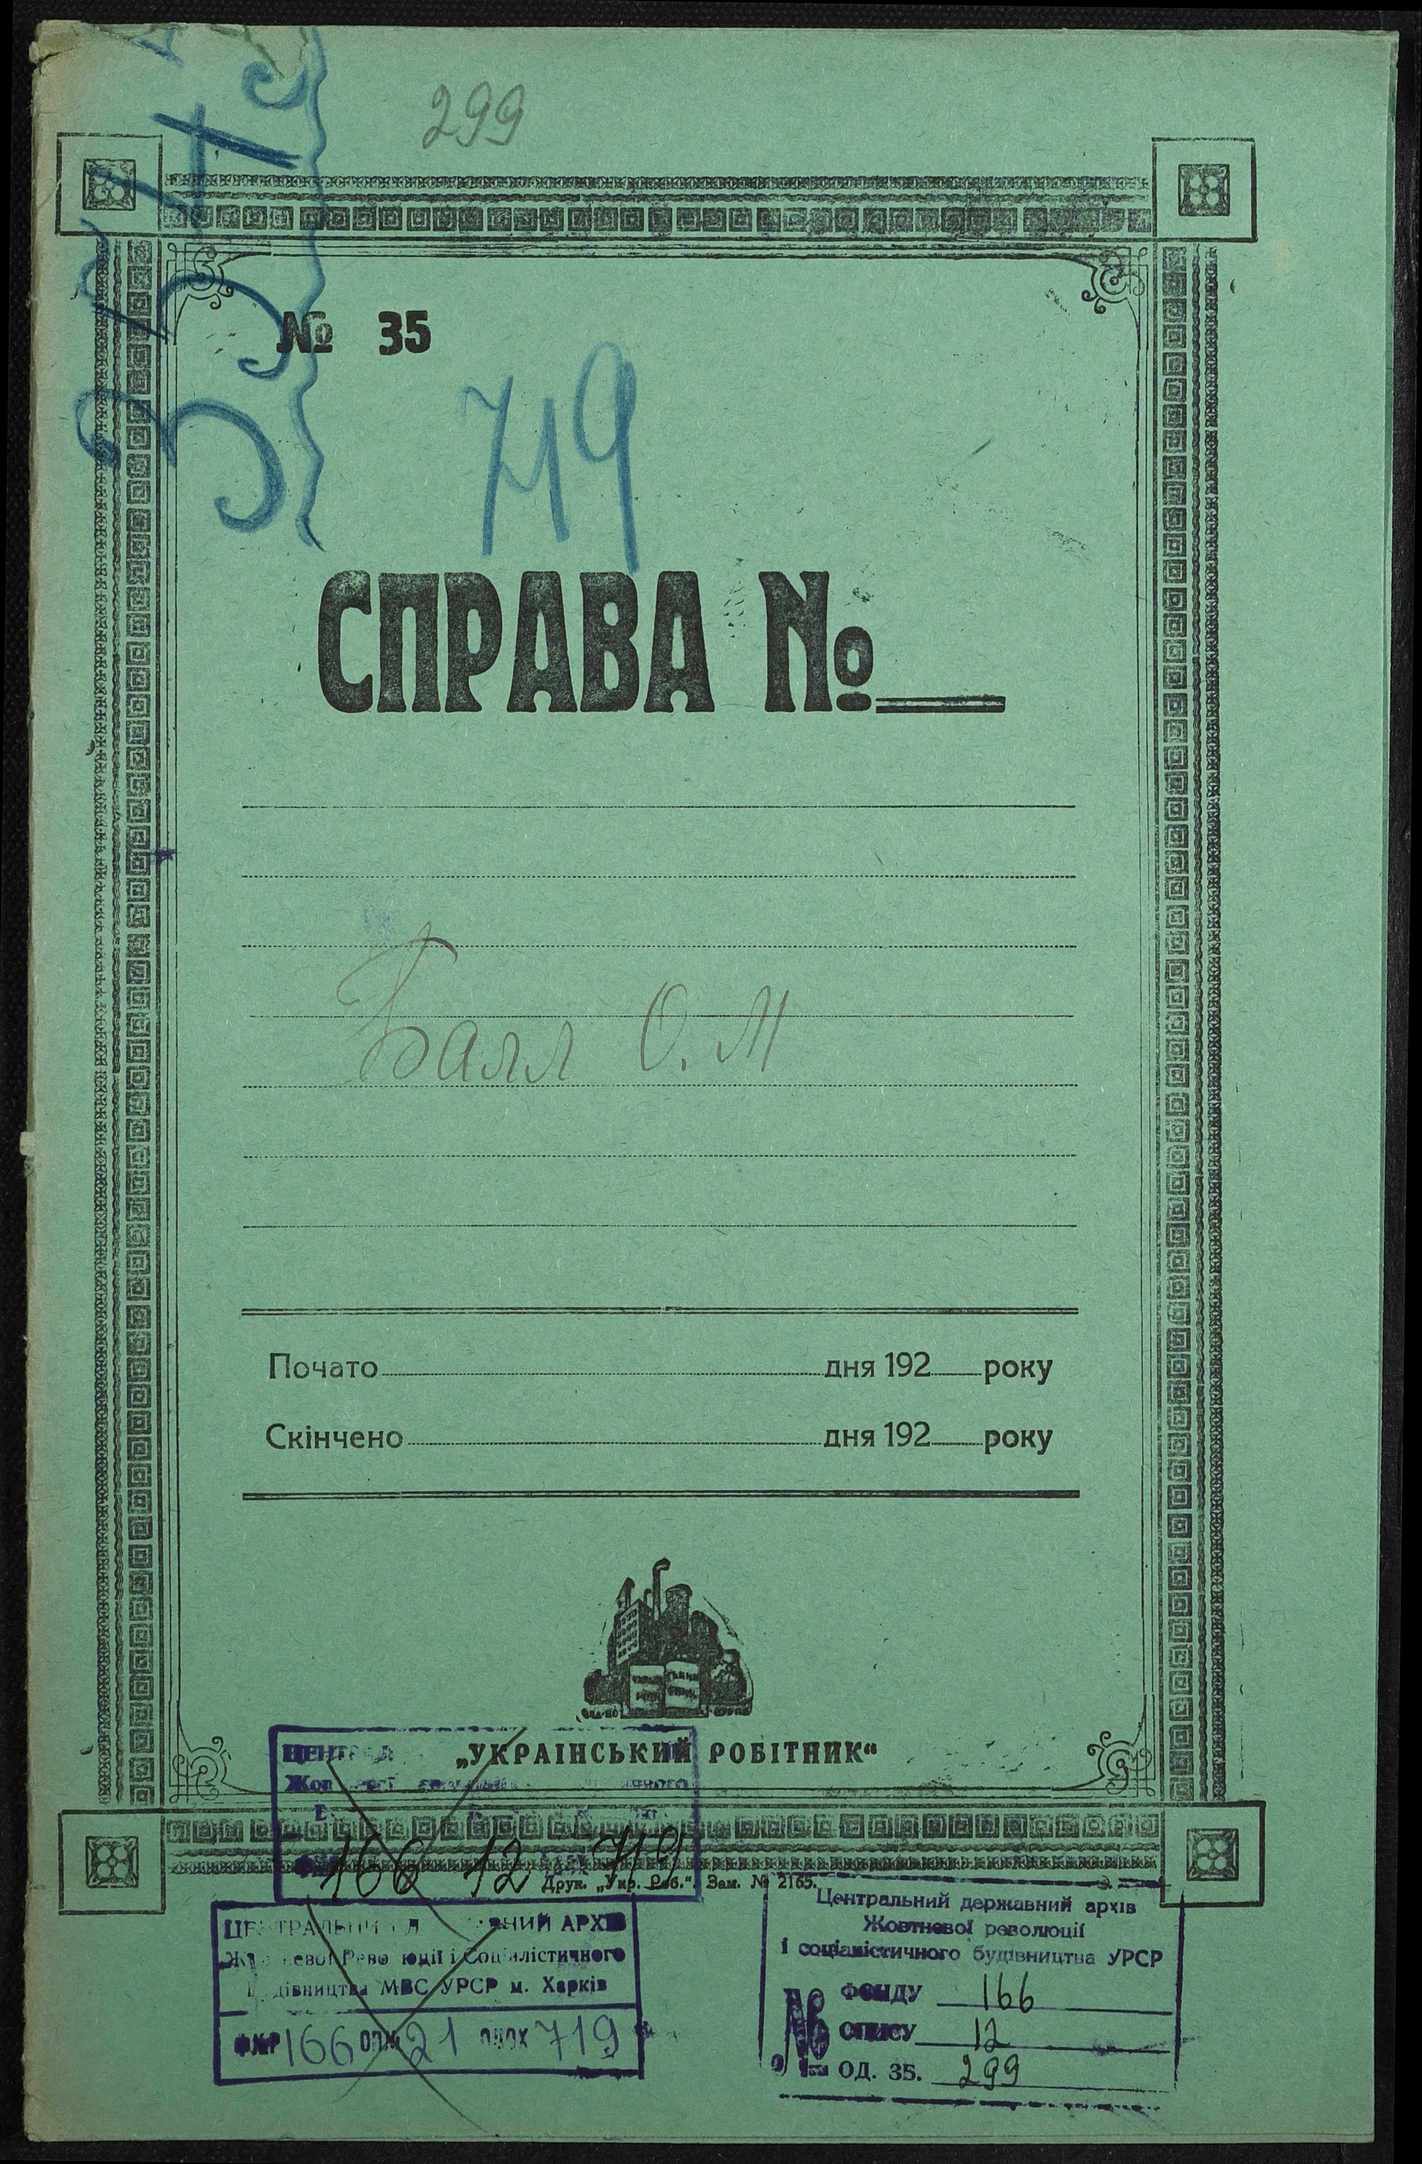 299
№ 35
719
СПРАВА №
Балл О. М
Почато дня 192 року
Скінчено дня 192 року
„УКРАІНСЬКИЙ РОБІТНИК“
166 12 719
Друк. „Укр. Роб.“. Зам. № 2165.
ЦЕНТРАЛЬНИЙ АРХІВ
Жовтневої Революції і Соціалістичного
Будівництва МВС УРСР м. Харків
166 21 719
Центральний державний архів
Жовтневої революції
і соціалістичного будівництва УРСР
№ ФОНДУ 166
ОПИСУ 12
ОД. ЗБ. 299